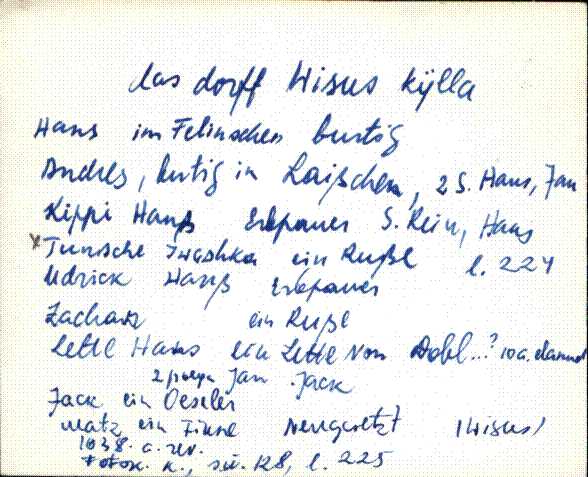 das dorff Wisus kÿlla
Hans im Felinschen burtig
Andres, burtig in Laißchen, 2 S. Hans, Jan
Kippi Hanß Erbpauer S. Rein, Hans
x Tunische Iwashka ein Ruße l. 224
Udrick Hanß Erbpauer
Zachar ein Ruße
Lette Hans ein Lette von ...? 10 a.
2 Jan Jack
Jack ein Oeseler
Matz ein Finne Neugesetzt (Wisus)
1038. a. rev.
Fotok. K., sü. 128, l. 225